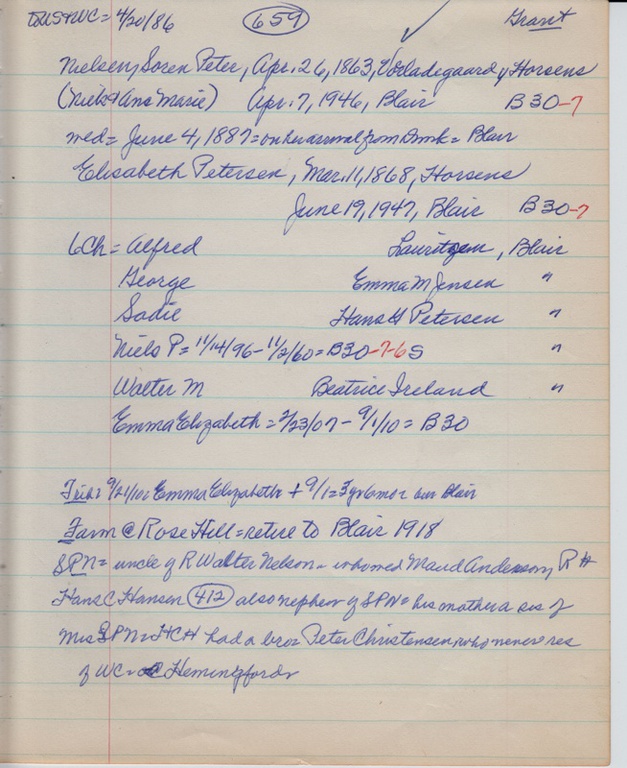 to US & WC = 4/20/86 659 Grant
Nielsen, Soren Peter, Apr. 26, 1863, Horsens
(Niels & Ana Marie) Apr. 7, 1946, Blair B30-7
wed = June 4, 1887 = on her arrival from Dmk = Blair
Elisabeth Petersen, Mar. 11, 1868, Horsens
June 19, 1947, Blair B30-7
6 Ch = Alfred Lauritzen, Blair
George Emma M Jensen "
Sadie Hans H Petersen "
Niels P = 11/14/96 - 11/2/60 = B30-7-6 S "
Walter M Beatrice Ireland "
Emma Elizabeth = 2/23/07 - 9/1/10 = B30
Emma Elizabeth + 9/1 = 3 yr 6 mo Blair
Farm @ Rose Hill = retire to Blair 1918
SPN = uncle of R Walter Nelson - who wed Maud Anderson, R #
Hans C Hansen 412 also nephew of SPN = his mother a sis of
Mrs SPN = HCH had a bro Peter Christensen, who never res
of WC = Hemingford